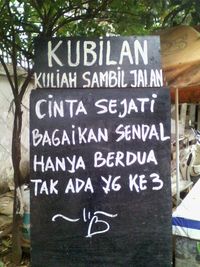 KUBILAN
KULIAH SAMBIL JALAN
CINTA SEJATI
BAGAIKAN SENDAL
HANYA BERDUA
TAK ADA YG KE 3